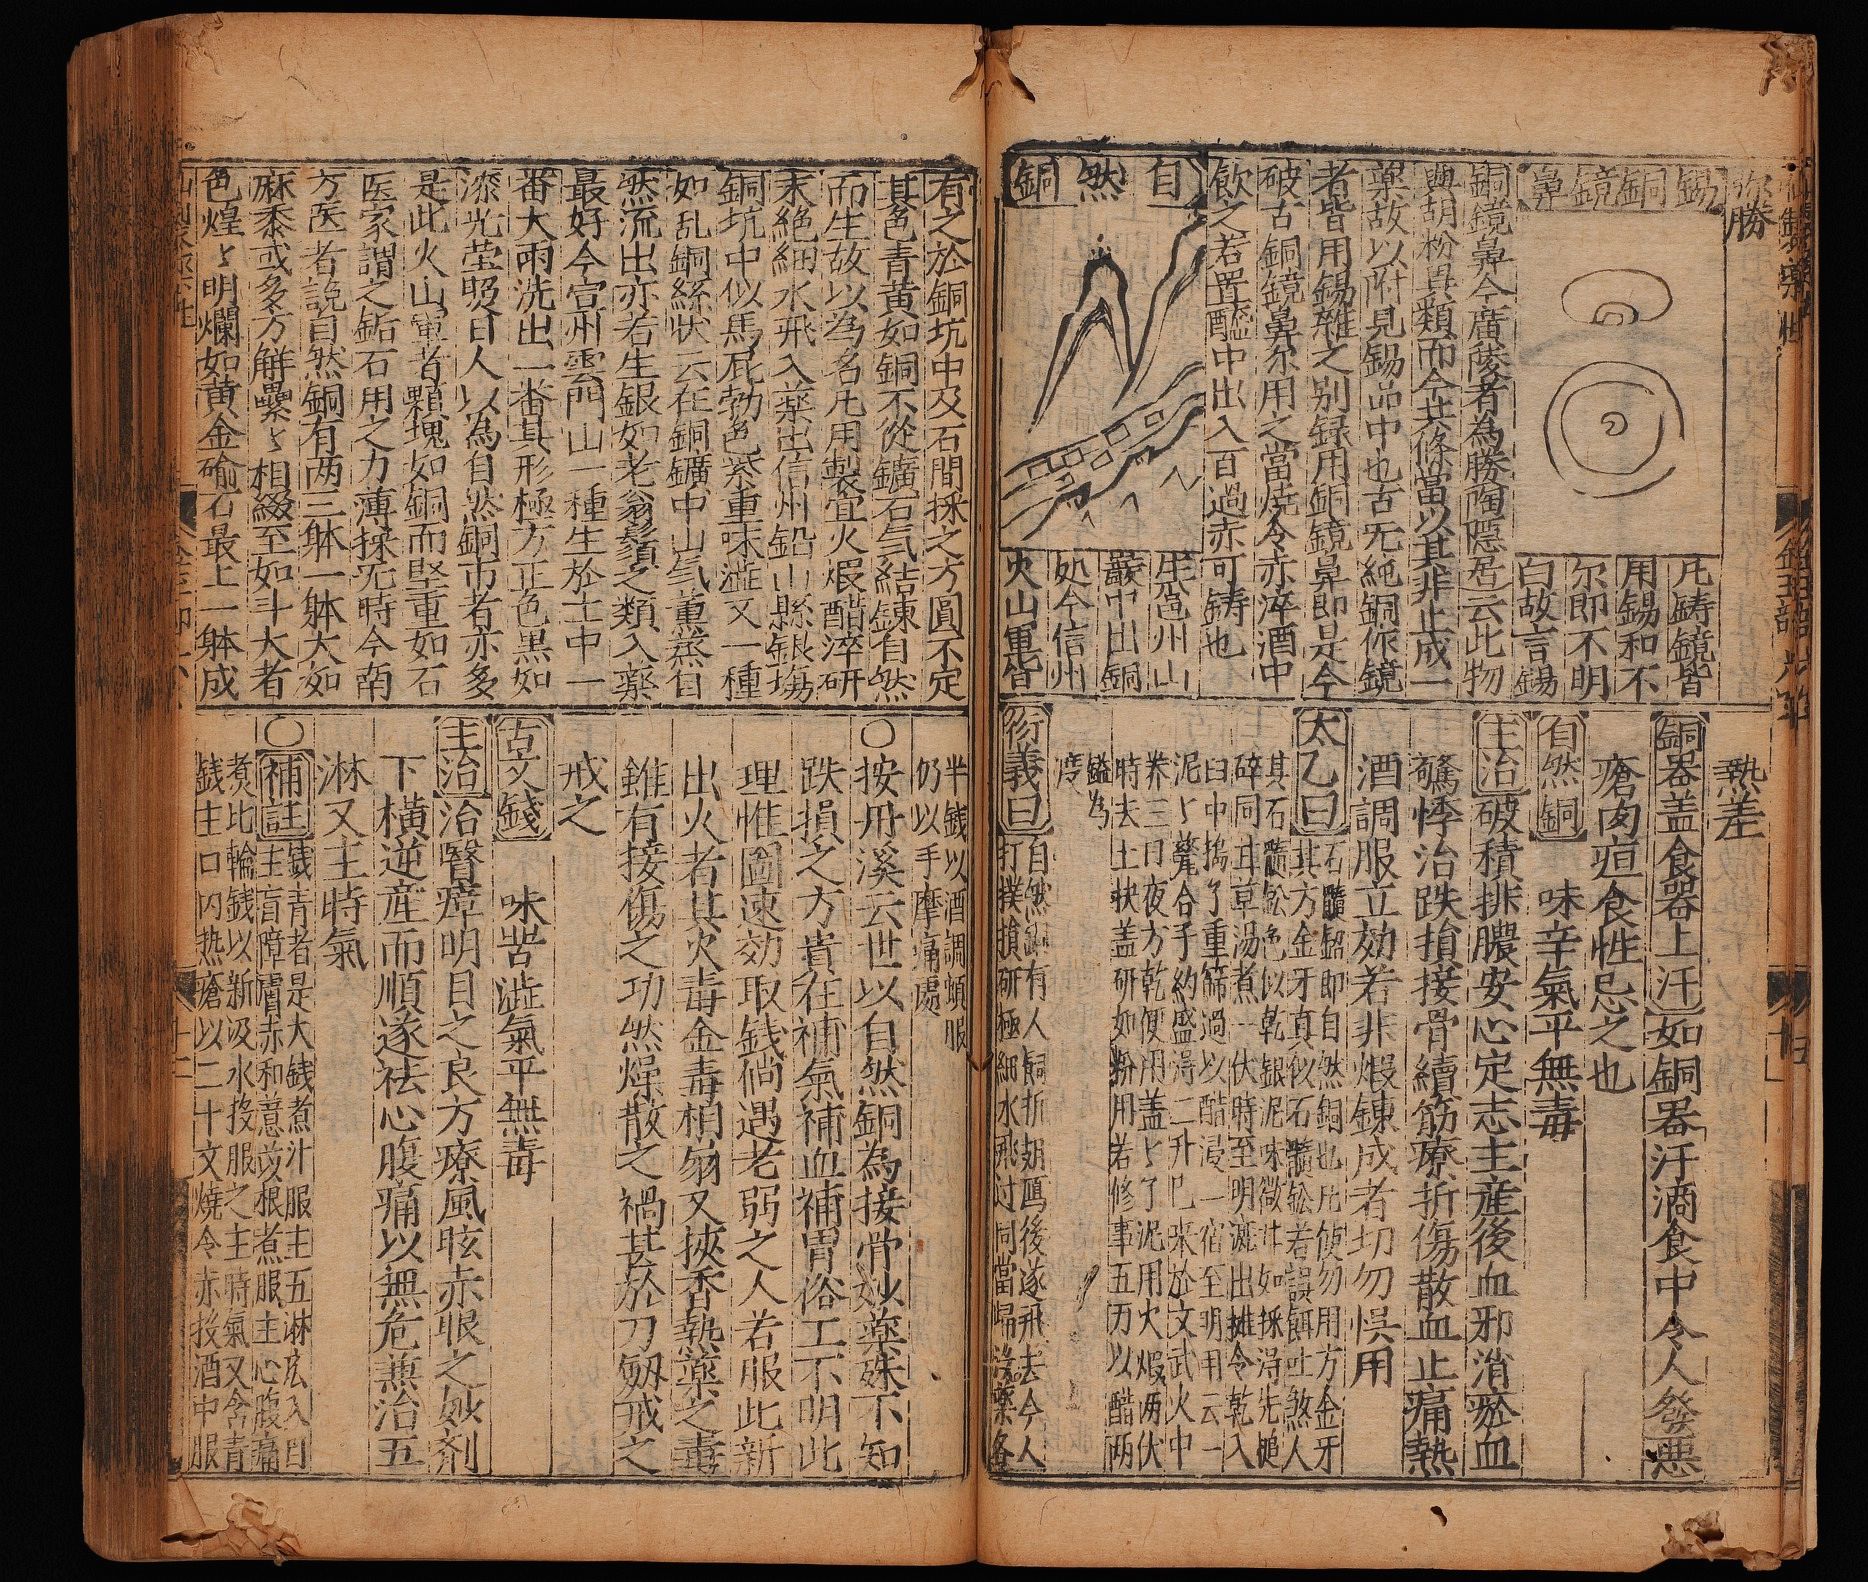 弥勝
錫銅鏡鼻
凡鑄鏡皆
用錫和不
尔即不明
白故言錫
銅鏡鼻今廣陵者為勝陶隱居云此物
與胡粉異類而今共條當以其非止成一
藥故以附見錫品中也古旡純銅作鏡
者皆用錫雜之别録用銅鏡鼻即是今
破古銅鏡鼻尔用之當燒令赤淬酒中
飲之若置醯中出入百過赤可鑄也
自然銅
生邕州山
巖中出銅
処今信州
火山軍皆
熱差
銅器盖食器上汗如銅器汗滴食中令人發惡
瘡肉疽食性忌之也
自然銅 味辛氣平無毒
主治破積排膿安心定志主産後血邪消瘀血
驚悸治跌損接骨續筋療折傷散血止痛熱
酒調服立効若非煆錬成者切勿悮用
太乙曰石髓鈆即自然銅也凡使勿用方金牙
其方金牙真似石髓鈆若誤餌吐煞人
其石髓鈆色似乾銀泥味微甘如採淂先槌
碎同甘草湯煮一伏時至明漉出攤令乾入
臼中搗了重篩過以醋浸一宿至明用六一
泥泥瓷合子約盛淂二升巳來於文武火中
养三日夜方乾便用盖盖了泥用火煆两伏
時去土抉盖研如粉用若修事五万以醋两
鎰為
度
衍義曰自然銅有人飼折翅鴈後遂飛去今人
打撲損研極細水飛过同當歸没藥各
半錢以酒調頻服
仍以手摩痛處
有之於銅坑中及石間採之方圓不定
其色青黄如銅不從鑛石气結錬自然
而生故以為名凡用製宜火煆醋淬研
末絶細水飛入藥出信州鉛山縣銀塲
銅坑中似馬屁勃色紫重味澁又一種
如乱銅絲状云在銅鑛中山气薫蒸自
然流出亦若生銀如老翁鬚之類入藥
最好今宣州雲門山一種生於土中一
番大雨洗出一番其形極方正色黒如
漆光莹吸日人以為自然銅市者亦多
是此火山軍者顆塊如銅而堅重如石
医家謂之鉐石用之力薄採旡時今南
方医者説自然銅有两三躰一躰大如
麻黍或多方解纍〻相綴至如斗大者
色煌〻明爛如黄金鍮石最上一躰成
○按丹溪云世以自然銅為接骨妙藥殊不知
跌損之方貴在補氣補血補胃俗工不明此
理惟圖速効取錢倘遇老弱之人若服此新
出火者其火毒金毒相翁又挾香熱藥之毒
雖有接傷之功然燥散之禍甚於刀劔戒之
戒之
古文錢 味苦澁氣平無毒
主治治瞖瘴明目之良方療風眩赤眼之妙剤
下橫逆産而順遂袪心腹痛以無危兼治五
淋又主時氣
○補註錢青者是大錢煮汁服主五淋
主盲障膚赤和薏苡根煮服主心腹痛
煮比輪錢以新汲水投服之主時氣又含青
錢主口内热瘡以二十文燒令赤投酒中服